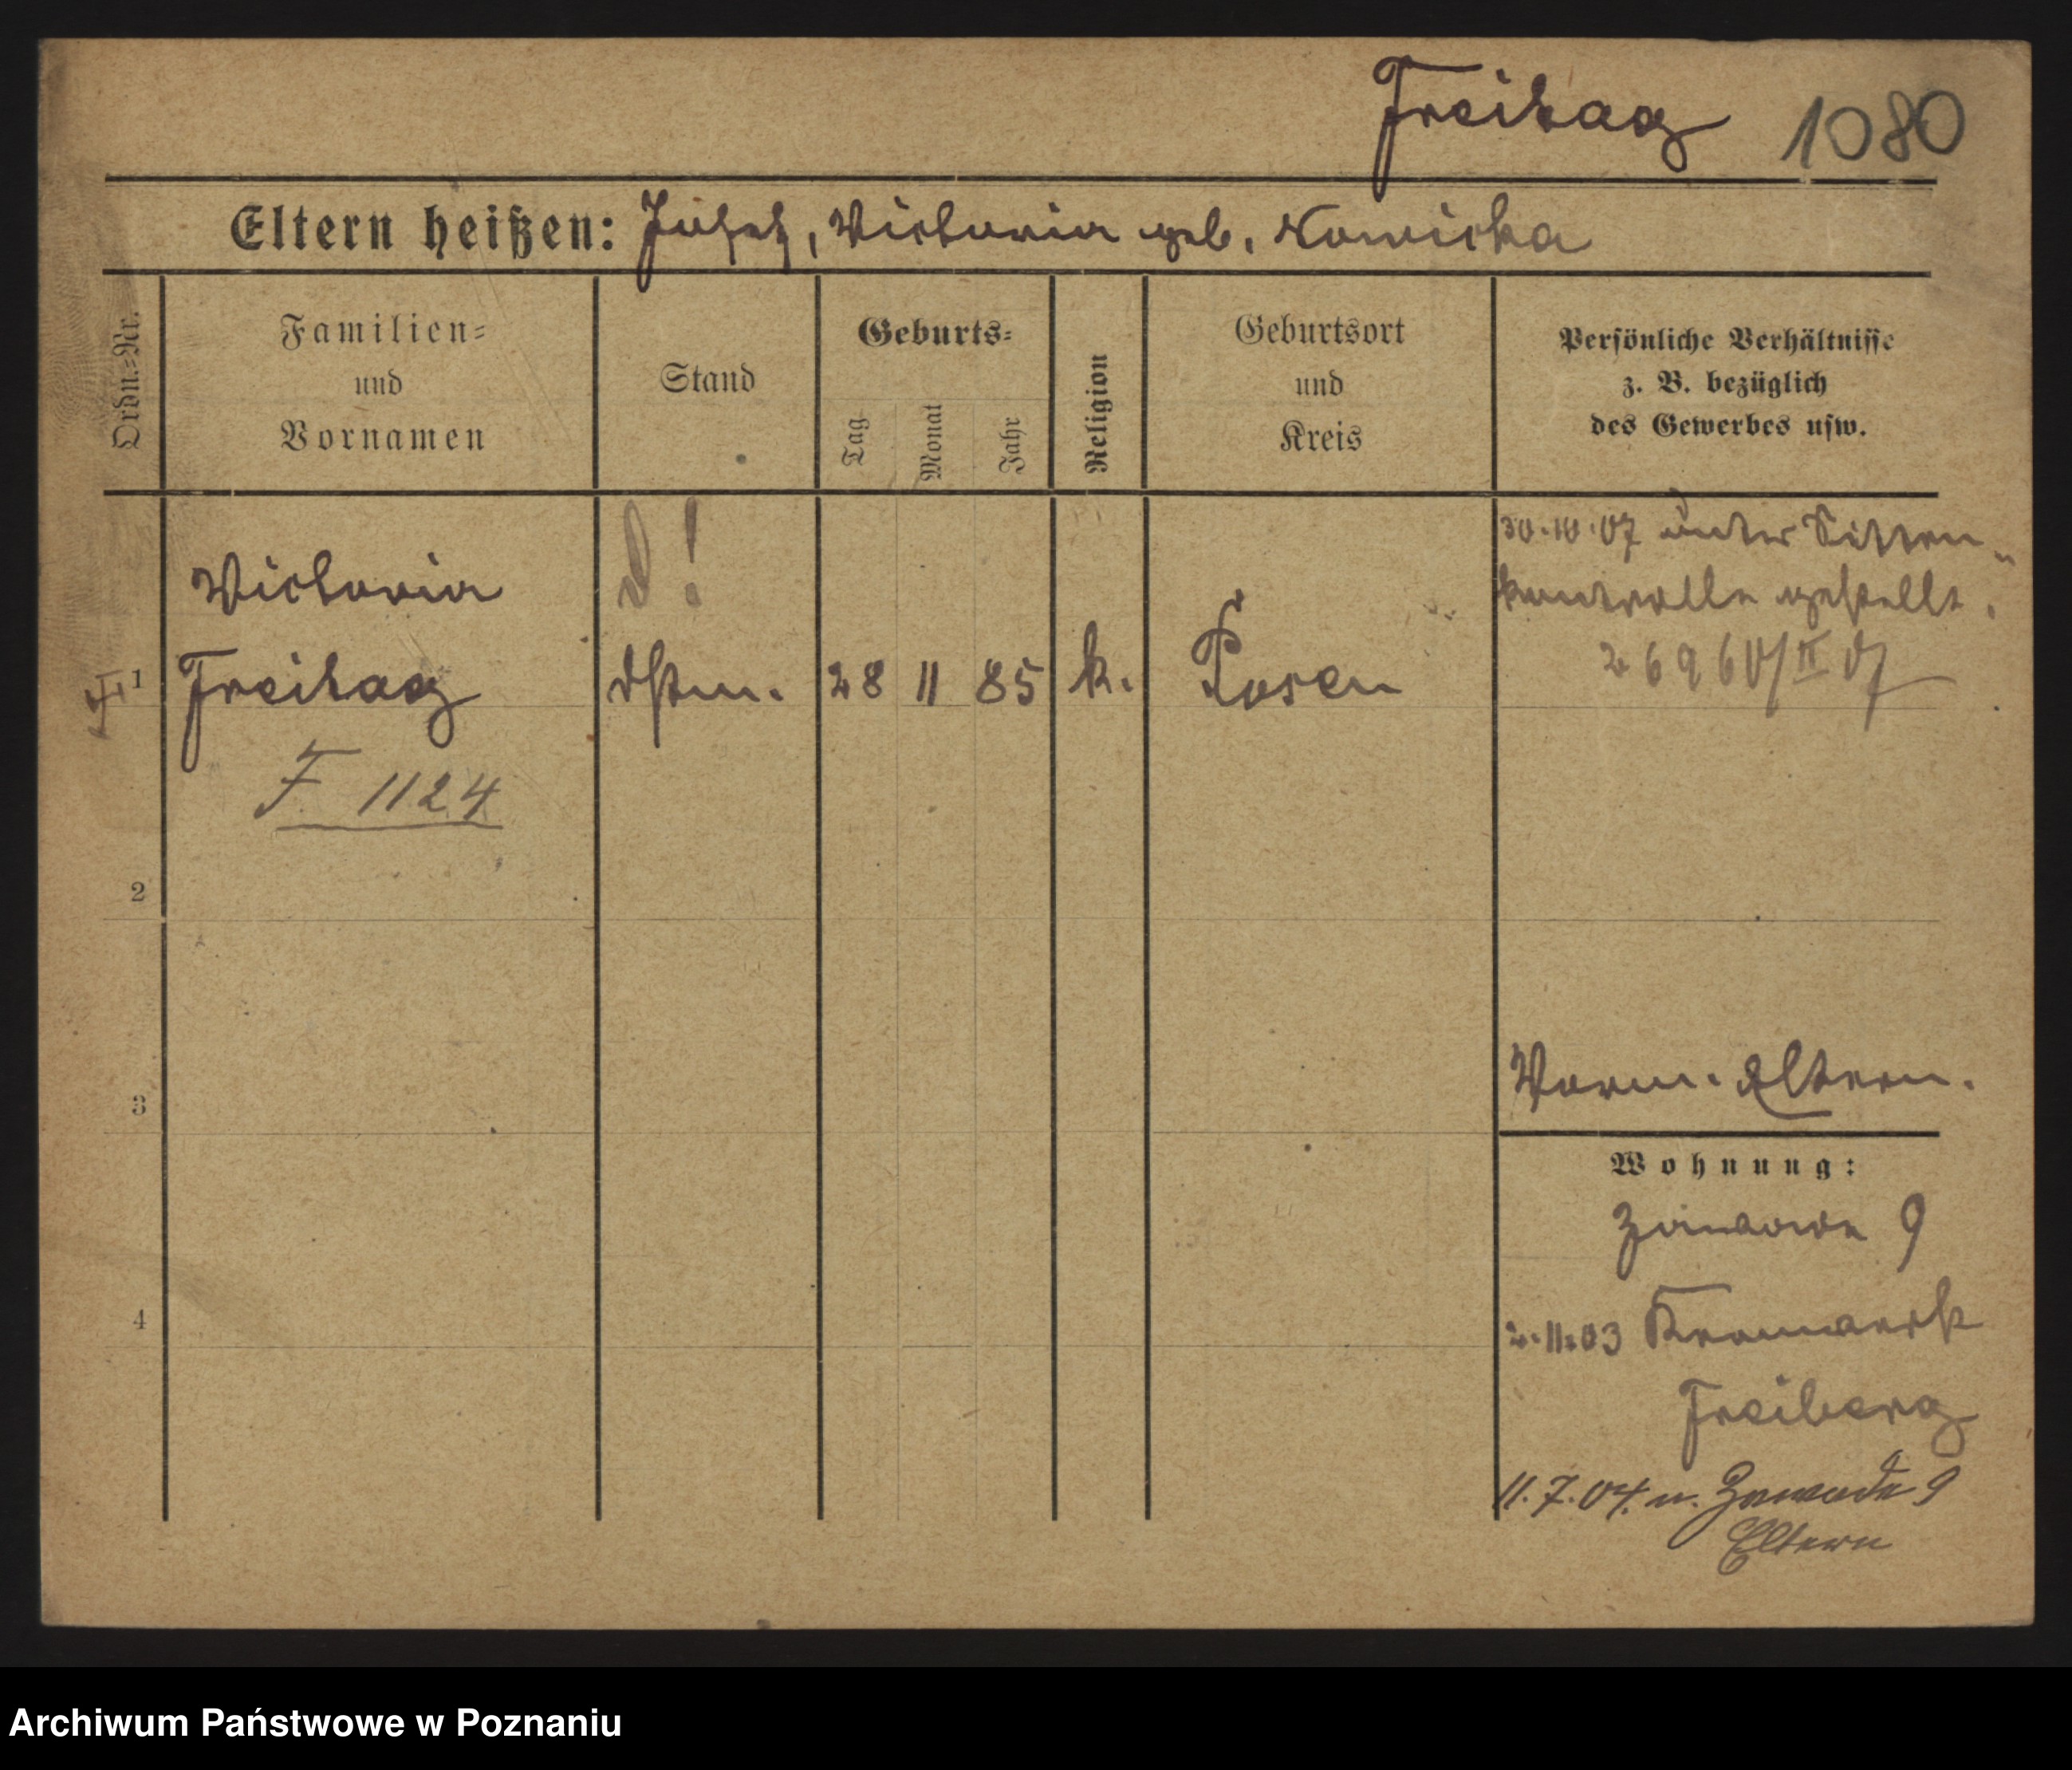 Freitag 1080
Eltern heißen: Josef, Victoria geb. Nowicka
Ordn.=Nr.
Familien=
und
Vornamen
Stand
Geburts=
Tag
Monat
Jahr
Religion
Geburtsort
und
Kreis
Persönliche Verhältnisse
z. B. bezüglich
des Gewerbes usw.
30.10.07 unter Sitten-
kontrolle gestellt.
26960/II 07
Victoria
1 Freitag
28 11 85 k. Posen
F 1124
2
3
Vorm. Eltern.
Wohnung:
Zawade 9
4
2.11.03
Freiberg
11.7.04. n. Zawade 9
Eltern
Archiwum Państwowe w Poznaniu